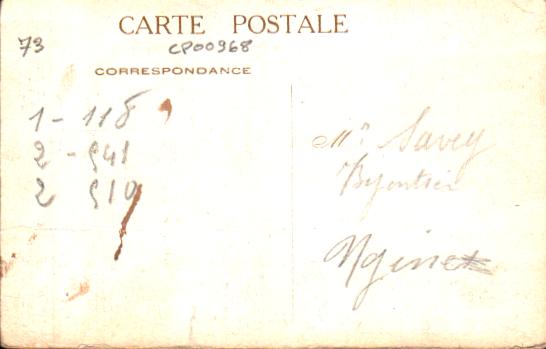 CARTE POSTALE
73
CP00968
CORRESPONDANCE
1 - 118
2 - 941
2 910
Mr Savey
Bijoutier